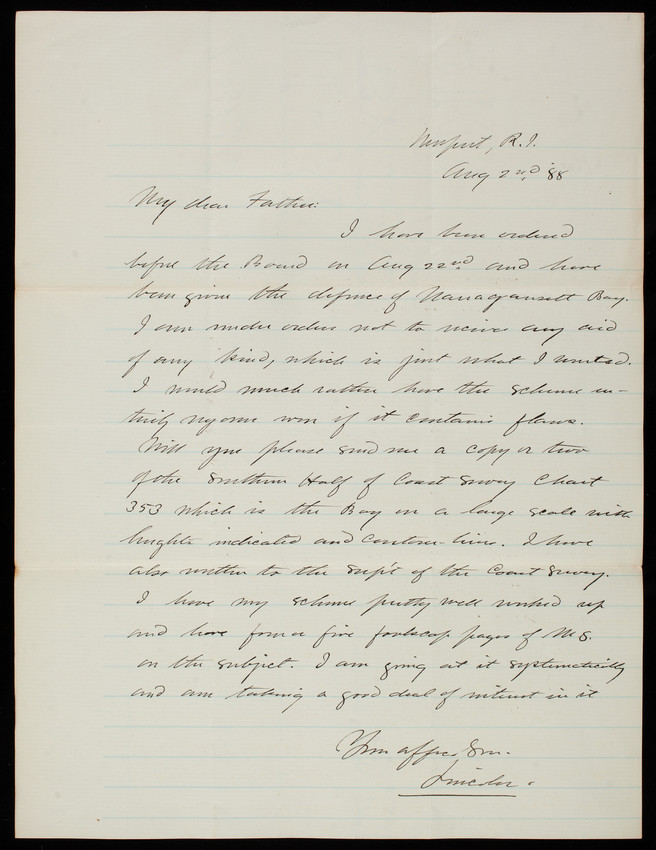 Newport, R.I.
Aug 2nd, '88
My dear Father:
I have been ordered
before the Board on Aug 22nd and have
been given the defence of Narragansett Bay.
I am under orders not to receive any aid
of any kind, which is just what I wanted.
I would much rather have the scheme en-
tirely my own even if it contains flaws.
Will you please send me a copy or two
of the Southern Half of Coast Survey Chart
353 which is the Bay on a large scale with
heights indicated and contour-lines. I have
also written to the Sup't of the Coast Survey.
I have my scheme pretty well worked up
and have four or five foolscap pages of M.S.
on the subject. I am going at it systematically
and am taking a good deal of interest in it
Your affec. Son.
Lincoln.